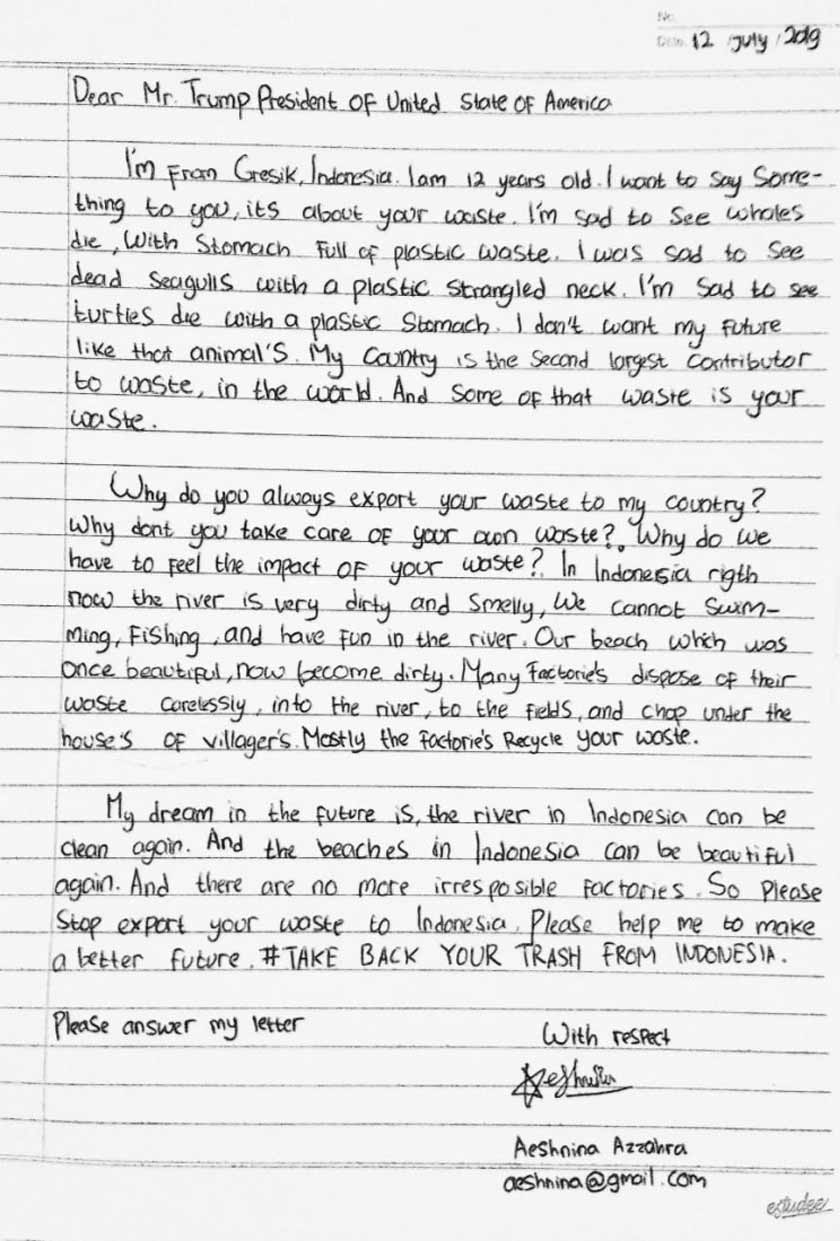 No.
Date. 12 July 2019
Dear Mr. Trump President of United State of America
I'm From Gresik, Indonesia. I am 12 years old. I want to say Some-
thing to you, its about your waste. I'm sad to See whales
die, With Stomach Full of plastic waste. I was sad to See
dead Seagulls with a plastic Strangled neck. I'm Sad to see
turtles die with a plastic Stomach. I don't want my Future
like that animal's. My Country is the Second largest Contributor
to waste, in the world. And Some of that waste is your
waste.
Why do you always export your waste to my country?
Why dont you take care of your own waste?. Why do we
have to feel the impact of your waste? In Indonesia rigth
now the river is very dirty and Smelly, We cannot Swim-
ming, Fishing, and have fun in the river. Our beach which was
once beautiful, now become dirty. Many factorie's dispose of their
waste carelessly, into the river, to the fields, and chop under the
house's of villager's. Mostly the factorie's Recycle your waste.
My dream in the future is, the river in Indonesia can be
clean again. And the beaches in Indonesia can be beautiful
again. And there are no more irresposible factories. So Please
Stop export your waste to Indonesia. Please help me to make
a better future. #TAKE BACK YOUR TRASH FROM INDONESIA.
Please answer my letter
With respect
Aeshnina Azzahra
aeshnina@gmail.com